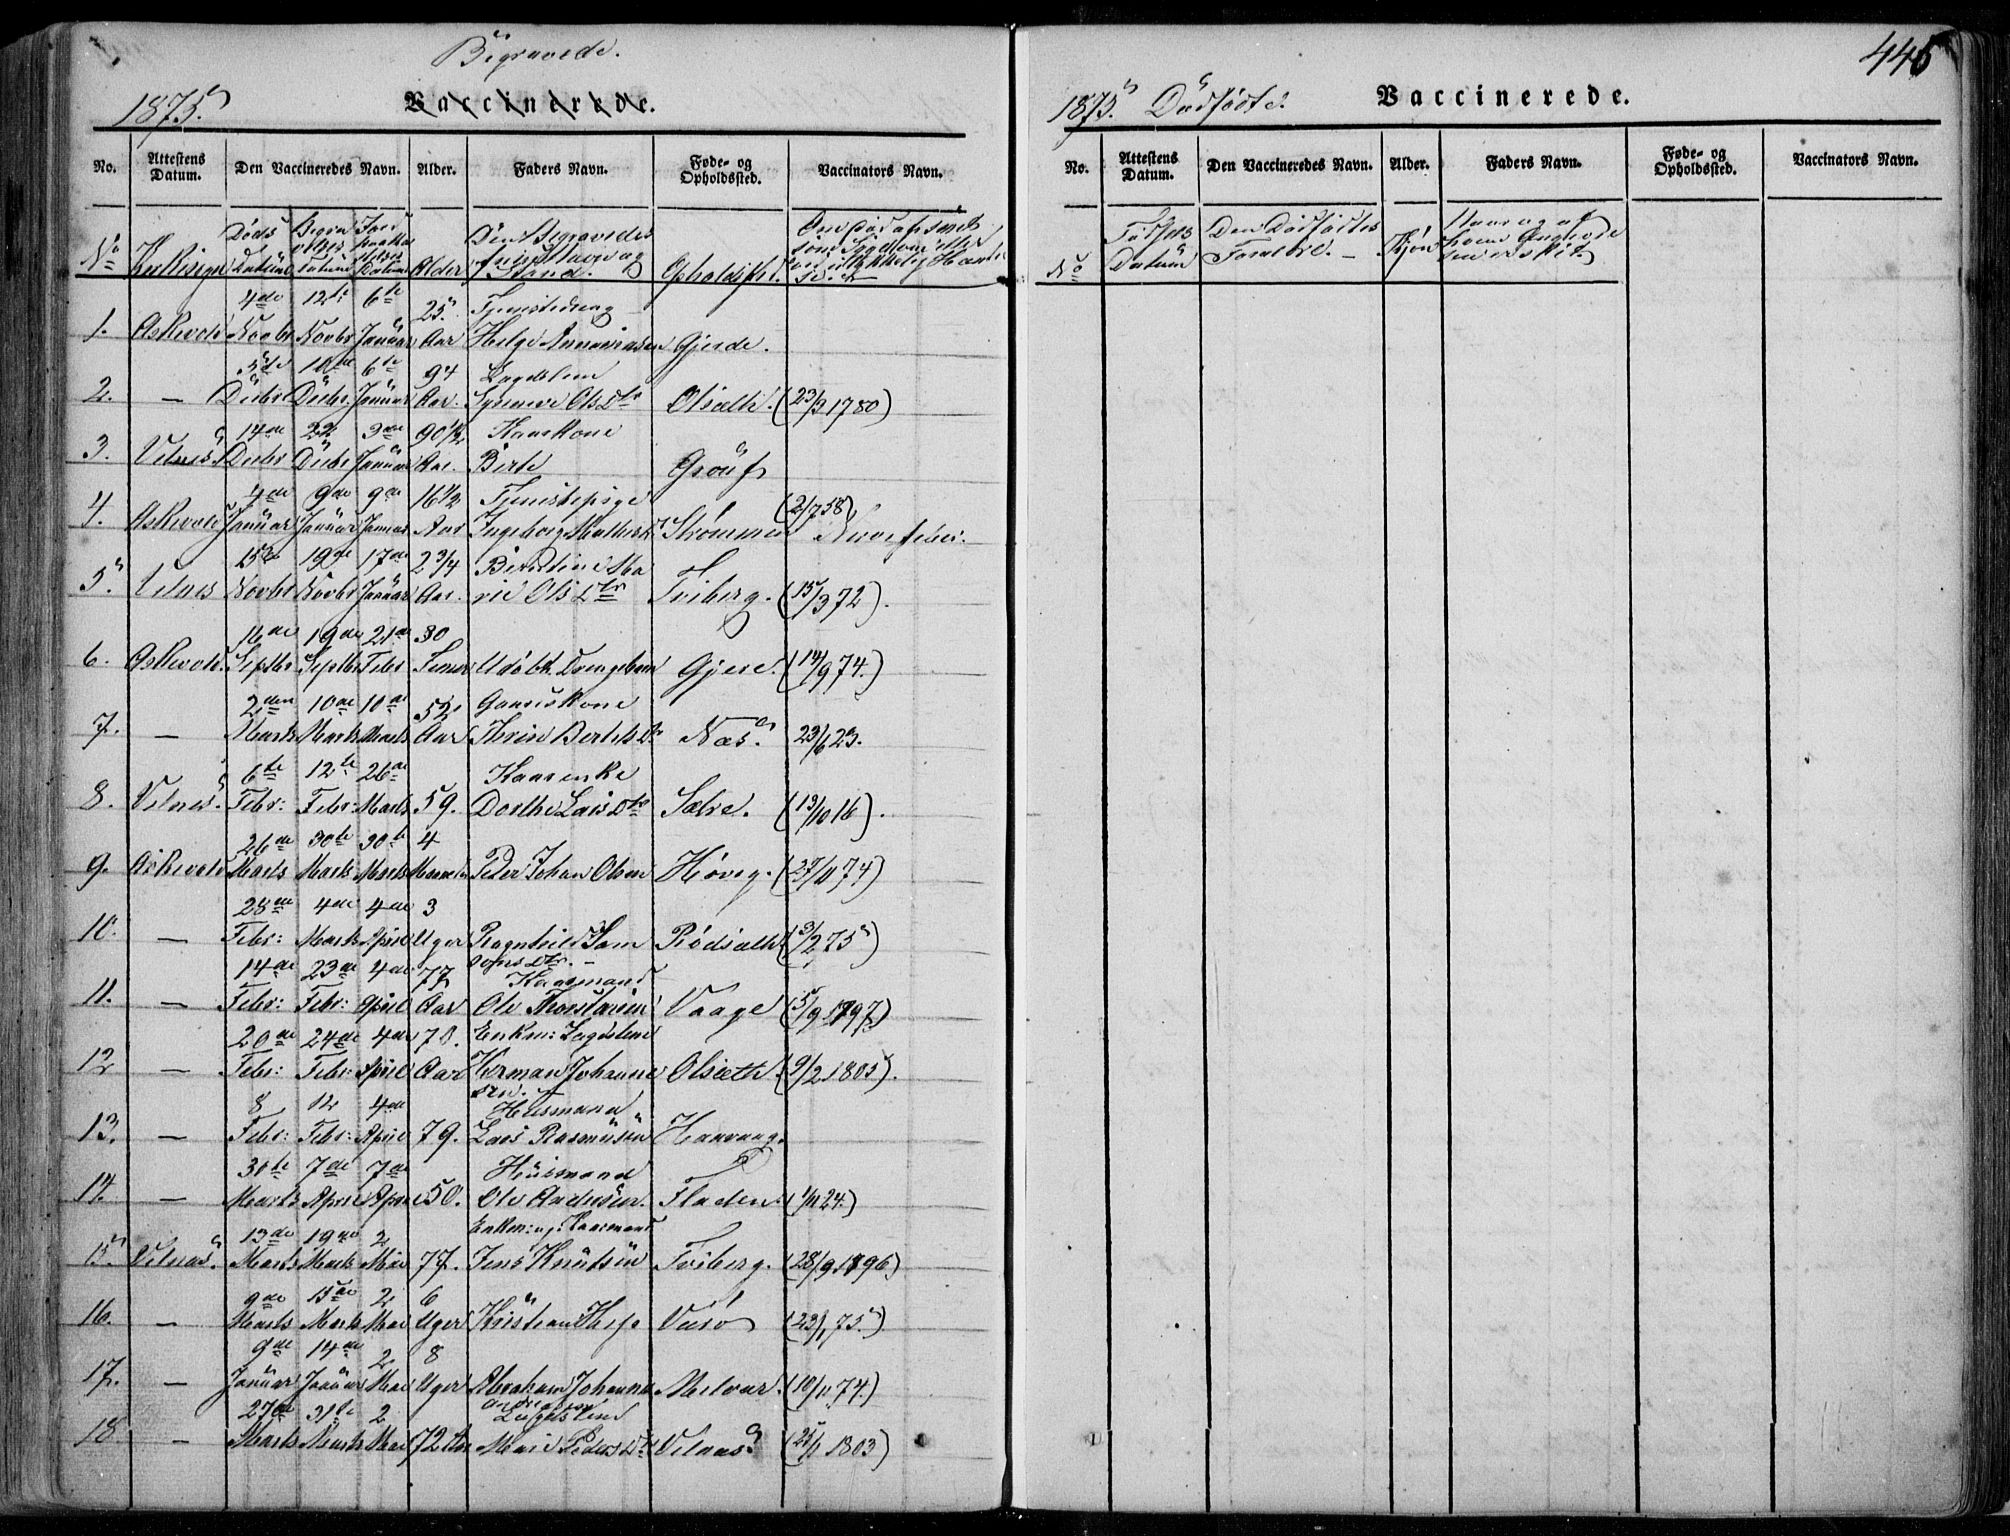 Begravede.
1875.
Vaccinerede.
No.
Attestens Datum.
Den Vaccineredes Navn.
Alder.
Faders Navn.
Føde- og Opholdssted.
Vaccinators Navn.
No
Kirkesogn
Døds Datum
Begravelses Datum
Jordpaakastelses Datum
Alder
Den Begravedes fulde Navn og Stand.
Opholdsst.
1. Askevold 4de Novbr 12te Novbr 6te Januar 25 Aar Tjenestedreng
Helge Gjerde.
2. — 5te Decbr 10de Decbr. 6te Januar 94 Aar. Lægdslem
Synneve Olsdtr Olsæth. (23/3 1780)
3. Vilnes. 14de Decbr 22 Decbr 3die Januar 90 1/2 Aar. Kaarkone
Birte
4. Askevold 4de Januar 9de Januar 9de Januar 16 1/2 Aar Tjenestepige
Ingeborg Strømmen (2/7 58) Nervefeber.
5. Vilnes Novbr 19de Novbr 17de Januar 2 3/4 Aar. Berntine Marie Olsdtr Tviberg. (15/3 72).
6. Askevold. 16de Septbr 19de Septbr 21de Febr 30 Timer Udøbt Drengebarn Gjere. (14/9 74.)
7. — 2den Marts 10de Marts 10de Marts 52 Aar Gaardkone
Thrine Bertelsdr Næs. 23/6 23.
8. Vilnes. 6te Febr: 12te Febr: 26de Marts 59. Kaarenke
Dorthe Larsdtr Sætre. (13/10 16).
9. Askevold 26de Marts 30te Marts 30te Marts 4 Maaneder Peder Johan Olsen Høveg. (27/11 74)
10. — 28de Febr: 4de Marts 4de April 3 Uger Ragnhild Samsonsdtr. — Rødsæth (3/2 75)
11. — 14de Febr: 23de Febr: 4de April 77 Aar Kaarmand
Ole Thorstensen Vaage (5/9 1797)
12 — 20de Febr: 24de Febr: 4de April 70. Aar Enkem: Lægdslem
Herman Johannesen. Olsæth (9/2 1805).
13. — 8 Febr: 12 Febr: 4de April 79. Husmand
Lars Rasmusen
14. — 30te Marts 7de April 7de April 50. Husmand
Ole Andersen. Fladen. (1/11 24.)
15. Vilnæs. 13de Marts 19de Marts 2 Mai 77. Enkem: og Kaarmand
Jens Knutsen Tviberg. (28/9 1796)
16. — 9de Marts 15de Marts 2 Mai 6 Uger Kristian Værø (23/1 75.)
17. — 9de Januar 14de Januar 2 Mai 8 Uger Abraham Johannes
Andreasen Melvær. (10/11 74.)
18. — 27de Marts 31te Marts 2 Mai 72 Aar Lægdslem
Marie Pedersdtr Vilnæs (25/1 1803)
445
1875. Dødfødte.
Vaccinerede.
No.
Attestens Datum.
Den Vaccineredes Navn.
Alder.
Faders Navn.
Føde- og Opholdssted.
Vaccinators Navn.
No
Fødsels Datum
Den Dødfødtes Forældre. —
Kjøn
Naar og af hvem Anmeldelsen er skeet